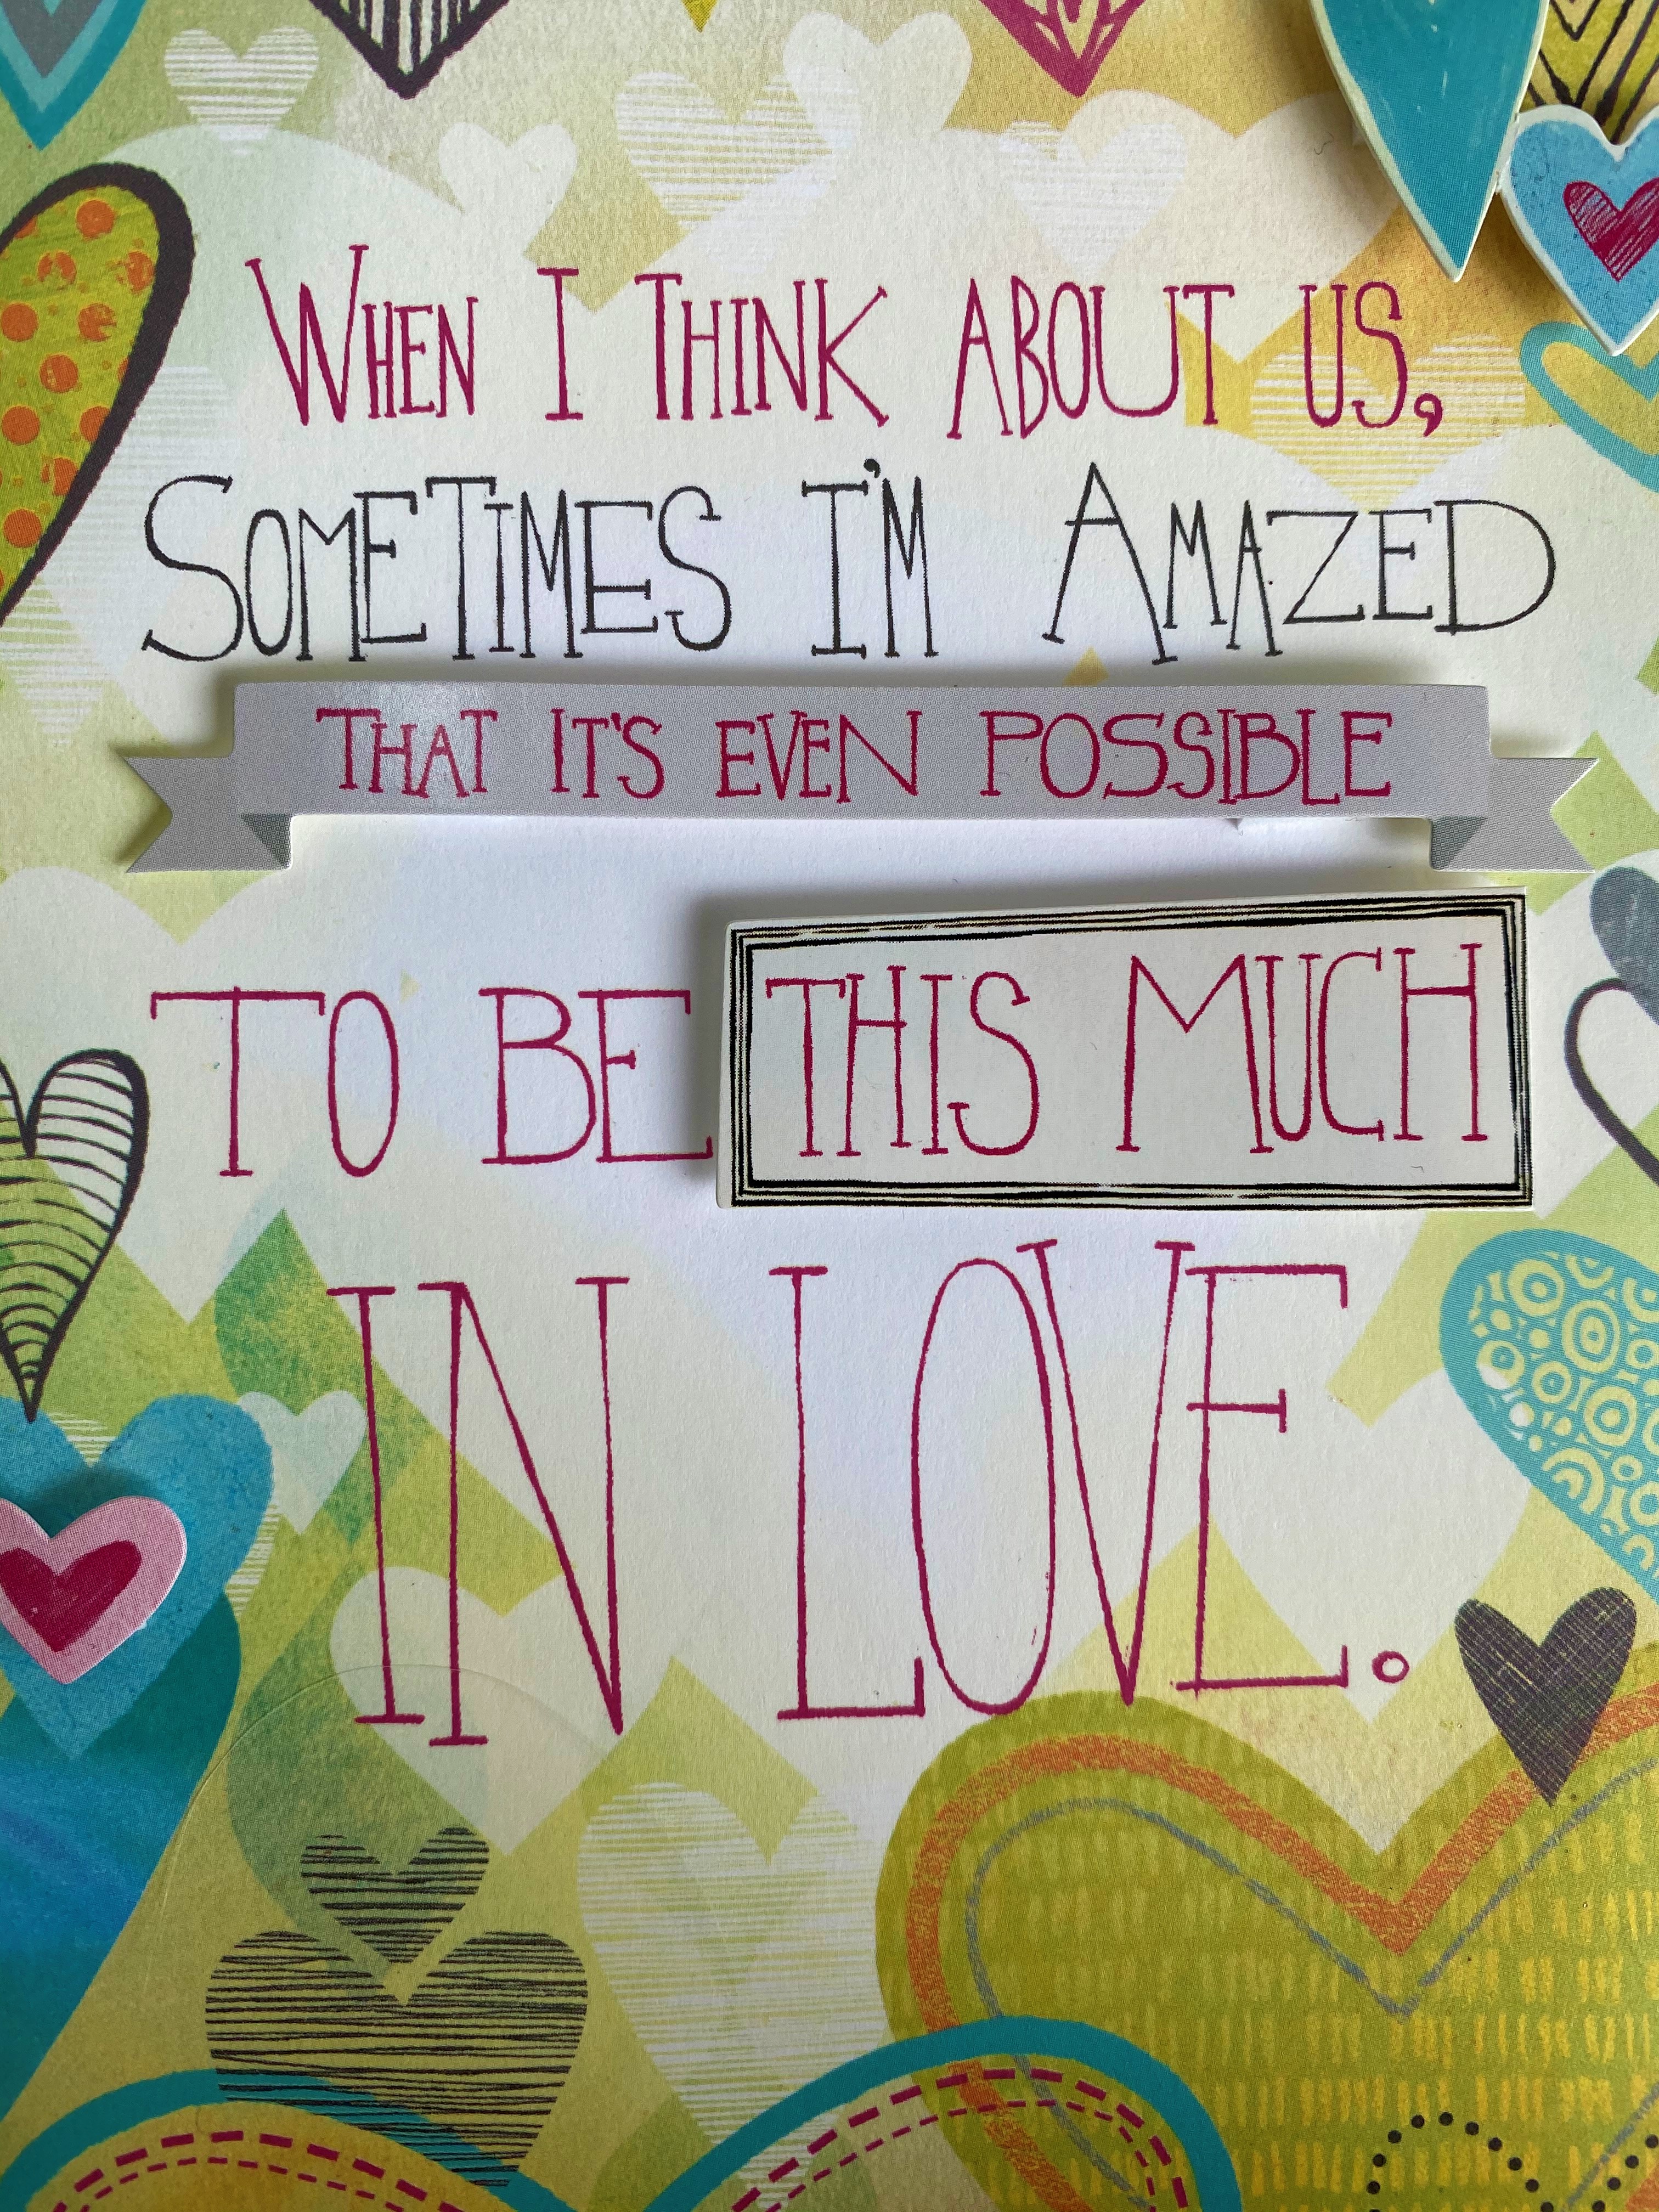 WHEN I THINK ABOUT US,
SOMETIMES I'M AMAZED
THAT IT'S EVEN POSSIBLE
TO BE THIS MUCH
IN LOVE.